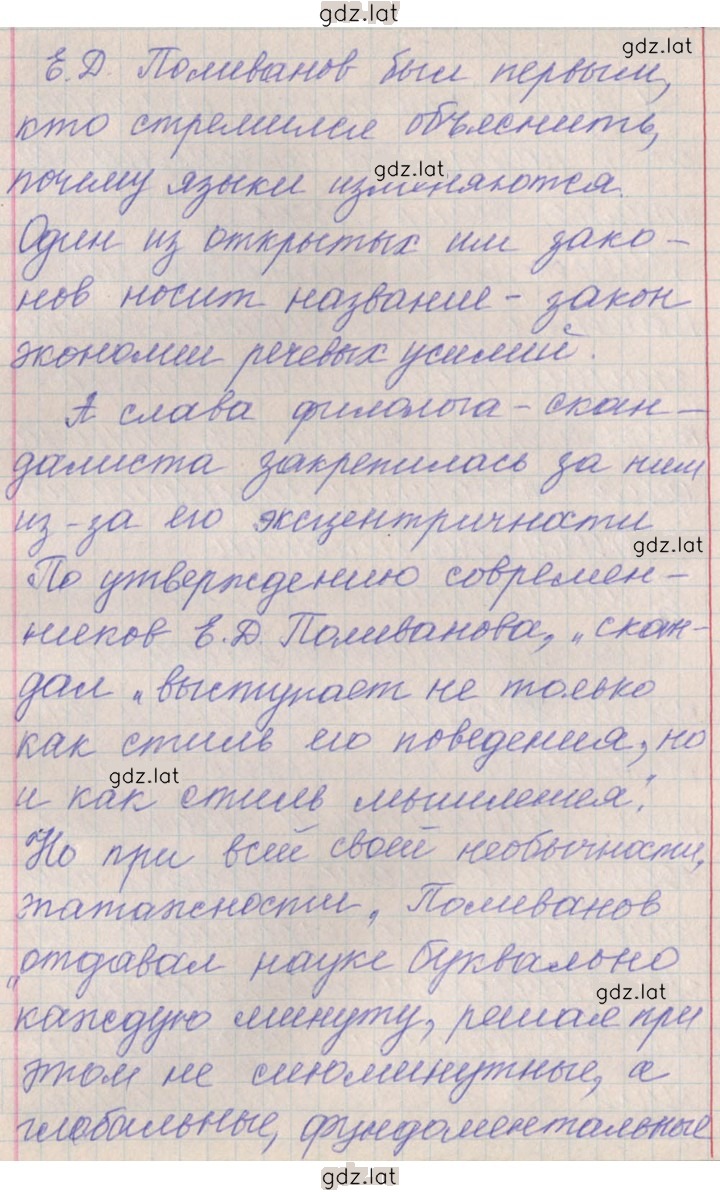 gdz.lat
gdz.lat
Е.Д. Поливанов был первым,
кто стремился объяснить,
gdz.lat
почему языки изменяются.
Один из открытых им зако-
нов носит название - закон
экономии речевых усилий.
А слава филолога-скан-
далиста закрепилась за ним
из-за его эксцентричности
gdz.lat
По утверждению современ-
ников Е.Д. Поливанова, „скан-
дал „выступает не только
как стиль его поведения, но
gdz.lat
и как стиль мышления".
Но при всей своей необычности,
эпатажности, Поливанов
„отдавал науке буквально
gdz.lat
каждую минуту, решая при
этом не сиюминутные, а
глобальные, фундоментальные
gdz.lat